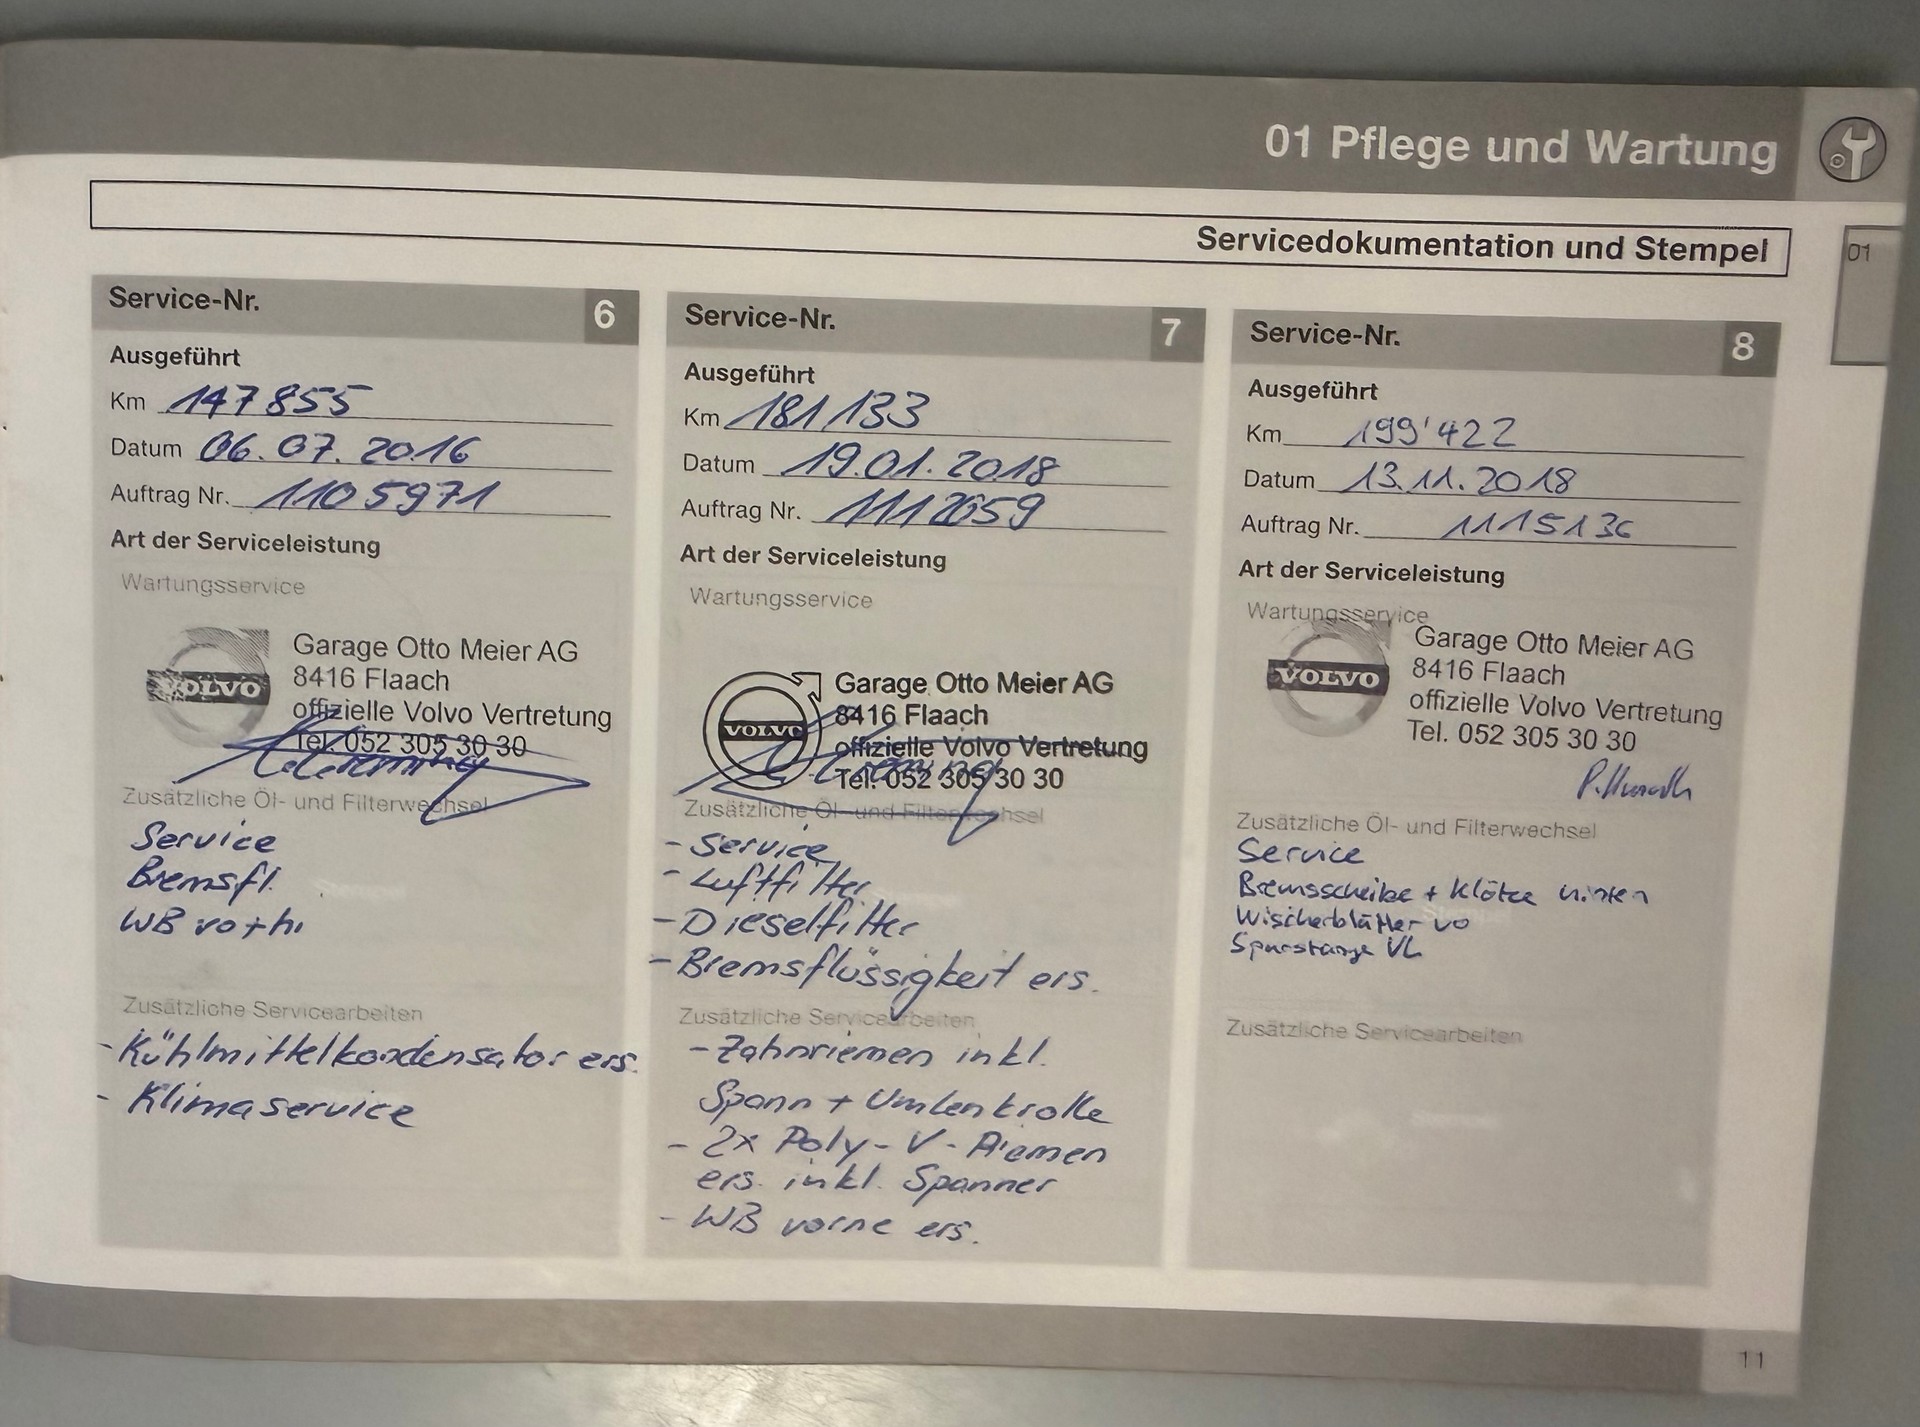 01 Pflege und Wartung
Servicedokumentation und Stempel
01
Service-Nr. 6
Ausgeführt
Km 147855
Datum 06.07.2016
Auftrag Nr. 1105971
Art der Serviceleistung
Wartungsservice
VOLVO
Garage Otto Meier AG
8416 Flaach
offizielle Volvo Vertretung
Tel. 052 305 30 30
Zusätzliche Öl- und Filterwechsel
Service
Bremsfl.
WB vo+hi
Zusätzliche Servicearbeiten
- Kühlmittelkondensator ers.
- Klimaservice
Service-Nr. 7
Ausgeführt
Km 181133
Datum 19.01.2018
Auftrag Nr.
Art der Serviceleistung
Wartungsservice
VOLVO
Garage Otto Meier AG
8416 Flaach
offizielle Volvo Vertretung
Tel. 052 305 30 30
Zusätzliche Öl- und Filterwechsel
- Service
- Luftfilter
- Dieselfilter
- Bremsflüssigkeit ers.
Zusätzliche Servicearbeiten
- Zahnriemen inkl.
Spann + Umlenkrolle
- 2x Poly-V-Riemen
ers. inkl. Spanner
- WB vorne ers.
Service-Nr. 8
Ausgeführt
Km 199'422
Datum 13.11.2018
Auftrag Nr. 1115136
Art der Serviceleistung
Wartungsservice
VOLVO
Garage Otto Meier AG
8416 Flaach
offizielle Volvo Vertretung
Tel. 052 305 30 30
Zusätzliche Öl- und Filterwechsel
Service
Bremsscheibe + Klötze hinten
Wischerblätter vo
Spurstange VL
Zusätzliche Servicearbeiten
11